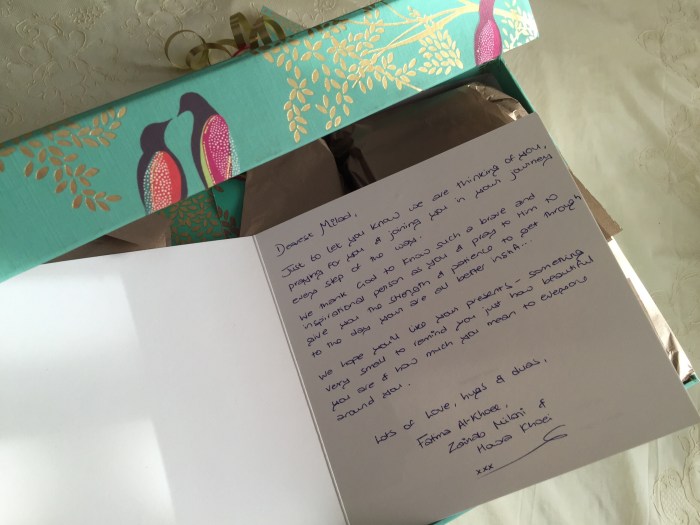 Dearest Milad,
Just to let you know we are thinking of you,
praying for you & joining you in your journey
every step of the way.
We thank God to know such a brave and
inspirational person as you & pray to Him to
give you the strength & patience to get through
to the days your are all better insha...
We hope you'll like your presents - something
very small to remind you just how beautiful
you are & how much you mean to everyone
around you.
Lots of love, hugs & duas,
Fatma Al-Khoei,
Zainab Milani &
Hawra Khoei
xxx